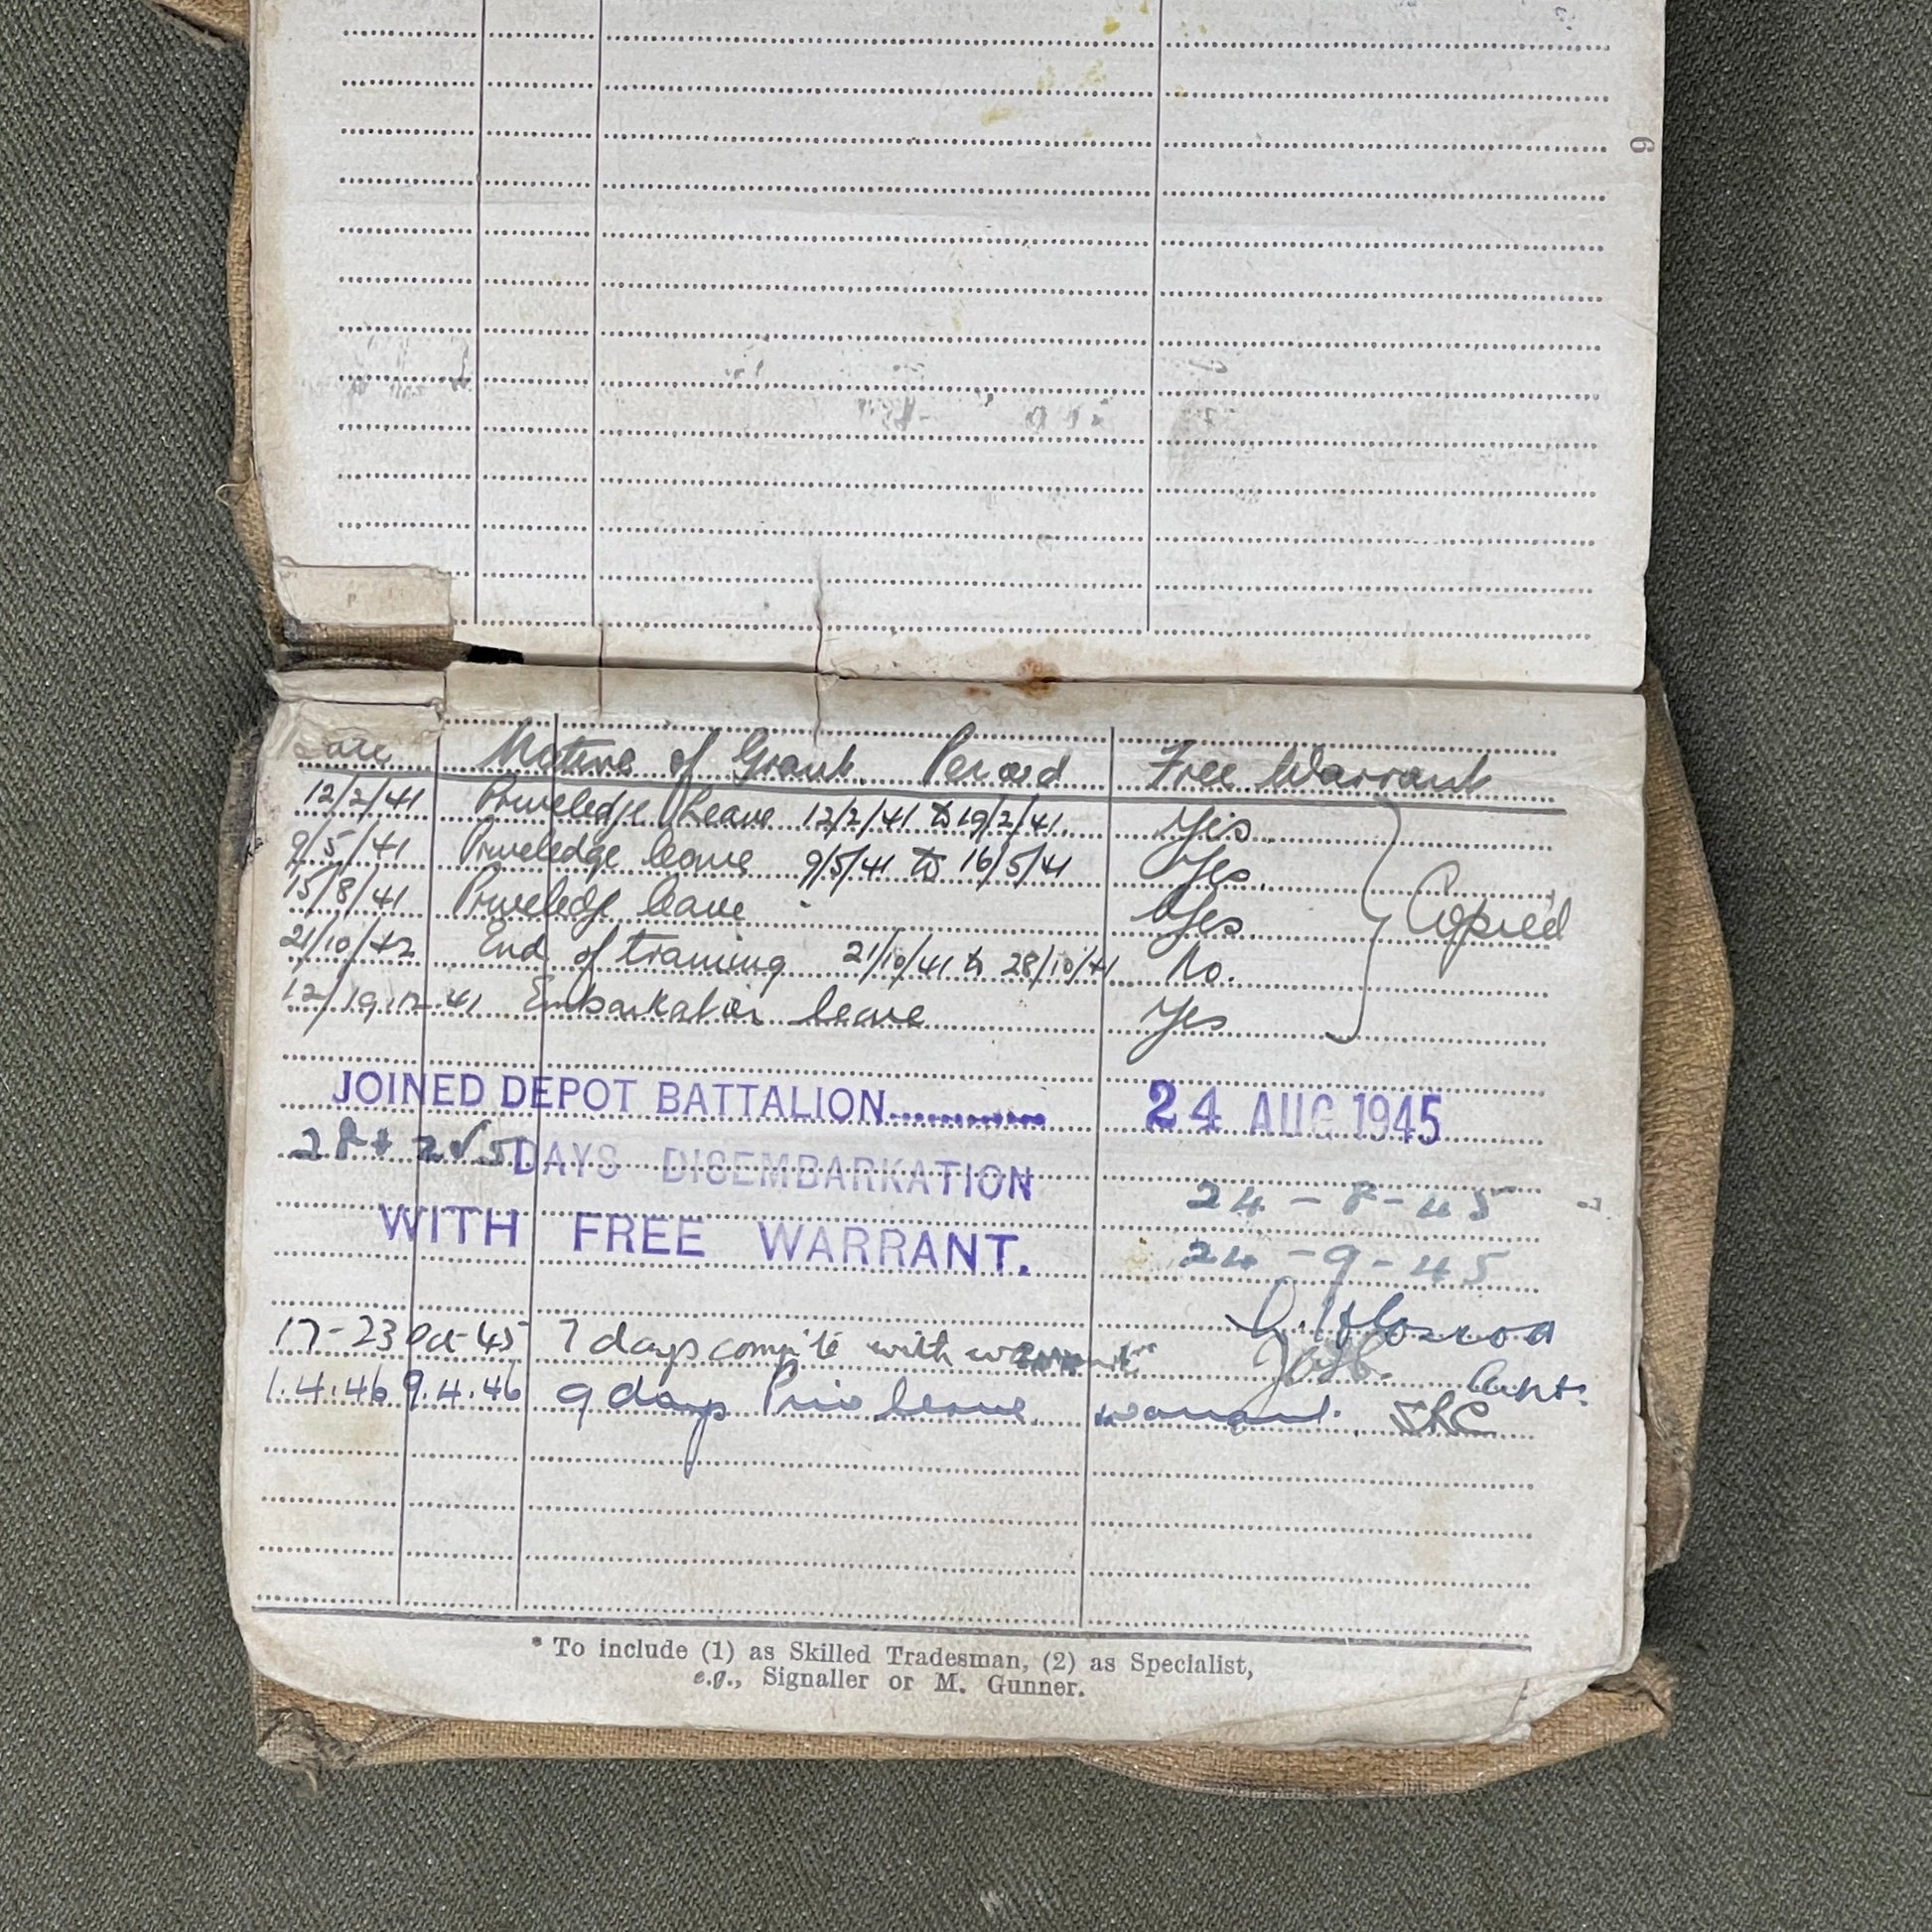 9
Date Nature of Grant. Period Free Warrant
12/2/41 Priveledge Leave 12/2/41 to 19/2/41. Yes
9/5/41 Priveledge leave 9/5/41 to 16/5/41 Yes.
15/8/41 Priveledge leave Yes. Copied
21/10/42 End of training 21/10/41 to 28/10/41 No.
12/19.12.41 Embarkation leave Yes
JOINED DEPOT BATTALION 24 AUG 1945
28 + DAYS DISEMBARKATION
24-8-45
WITH FREE WARRANT.
24-9-45
17-23 Oct-45 7 days with warrant
Capt.
1.4.46 9.4.46 9 days Priv leave warrant.
* To include (1) as Skilled Tradesman, (2) as Specialist,
e.g., Signaller or M. Gunner.